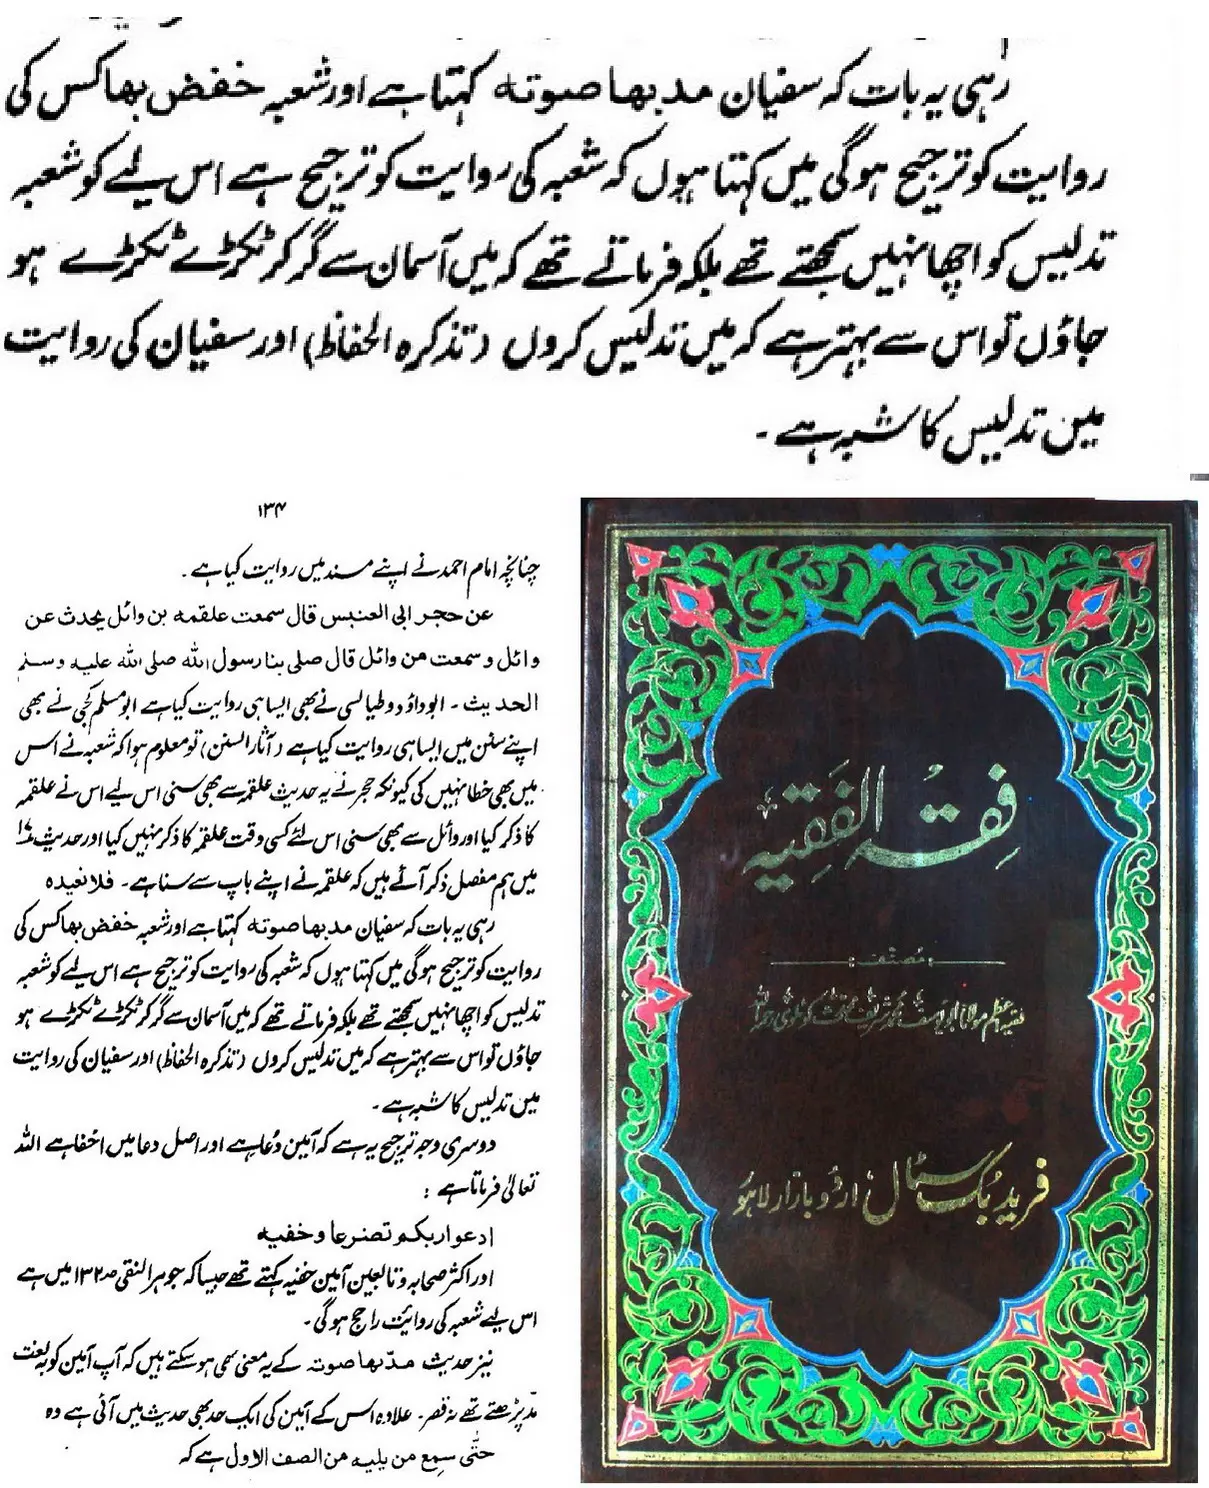 رہی یہ بات کہ سفیان مدبھا صوتہ کہتا ہے اور شعبہ خفض بھا کس کی
روایت کو ترجیح ہوگی میں کہتا ہوں کہ شعبہ کی روایت کو ترجیح ہے اس لیے کو شعبہ
تدلیس کو اچھا نہیں سمجھتے تھے بلکہ فرماتے تھے کہ میں آسمان سے گر کر ٹکڑے ٹکڑے ہو
جاؤں تو اس سے بہتر ہے کہ میں تدلیس کروں (تذکرہ الحفاظ) اور سفیان کی روایت
میں تدلیس کا شبہ ہے ۔
۱۳۴
چنانچہ امام احمد نے اپنے مسند میں روایت کیا ہے ۔
عن حجر ابی العنبس قال سمعت علقمہ بن وائل یحدث عن
وائل و سمعت من وائل قال صلی بنا رسول اللہ صلی اللہ علیہ وسلم
الحدیث ۔ ابوداؤد وطیالسی نے بھی ایسا ہی روایت کیا ہے ابومسلم کجی نے بھی
اپنے سنن میں ایسا ہی روایت کیا ہے (آثار السنن) تو معلوم ہوا کہ شعبہ نے اس
میں بھی خطا نہیں کی کیونکہ حجر نے یہ حدیث علقمہ سے بھی سنی اس لیے اس نے علقمہ
کا ذکر کیا اور وائل سے بھی سنی اس لئے کسی وقت علقمہ کا ذکر نہیں کیا اور حدیث
میں ہم مفصل ذکر آئے ہیں کہ علقمہ نے اپنے باپ سے سنا ہے ۔ فلا نعیدہ
رہی یہ بات کہ سفیان مدبھا صوتہ کہتا ہے اور شعبہ خفض بھا کس کی
روایت کو ترجیح ہوگی میں کہتا ہوں کہ شعبہ کی روایت کو ترجیح ہے اس لیے کو شعبہ
تدلیس کو اچھا نہیں سمجھتے تھے بلکہ فرماتے تھے کہ میں آسمان سے گر کر ٹکڑے ٹکڑے ہو
جاؤں تو اس سے بہتر ہے کہ میں تدلیس کروں (تذکرہ الحفاظ) اور سفیان کی روایت
میں تدلیس کا شبہ ہے ۔
دوسری وجہ ترجیح یہ ہے کہ آمین دُعا ہے اور اصل دعا میں اخفا ہے اللہ
تعالیٰ فرماتا ہے :
ادعوا ربکم تضرعا وخفیہ
اور اکثر صحابہ و تابعین آمین خفیہ کہتے تھے جیسا کہ جوہر النقی صـ۱۳۲ میں ہے
اس لیے شعبہ کی روائت راجح ہوگی ۔
نیز حدیث مدّبھا صوتہ کے یہ معنی بھی ہو سکتے ہیں کہ آپ آمین کو بلغت
مد پڑھتے تھے نہ قصر ۔ علاوہ اس کے آمین کی ایک حد بھی حدیث میں آئی ہے وہ
حتّٰی سمع من یلیہ من الصف الاول ہے کہ
فِقہُ الفَقِیہ
مُصنف:
فقیہ اعظم مولانا ابو یوسف محمد شریف محدث کوٹلوی رحمہ اللہ
فرید بُک سٹال اردو بازار لاہور